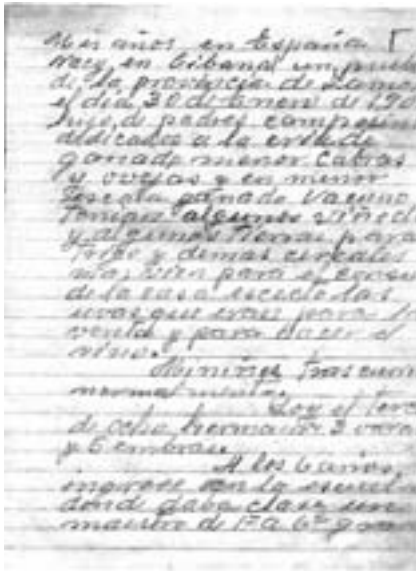 Mis años en España
Nací en Cibanal un pueb
de la provincia de Zamo
el día 30 de Enero de 190
hijo de padres campesin
dedicados a la cria de
ganado menor cabras
y ovejas y en menor
escala ganado vacuno
tenian algunos viñed
y algunas tierras para
trigo y demas cereales
para el consu
de la casa esceto las
uvas que eran para la
venta y para hacer el
vino.
Mi niñez trascurri
normalmente.
Soy el terc
de ocho hermanos 3 varo
y 5 embras.
A los 6 años,
ingrese en la escuel
donde daba clase un
maestro de 1º a 6º gra